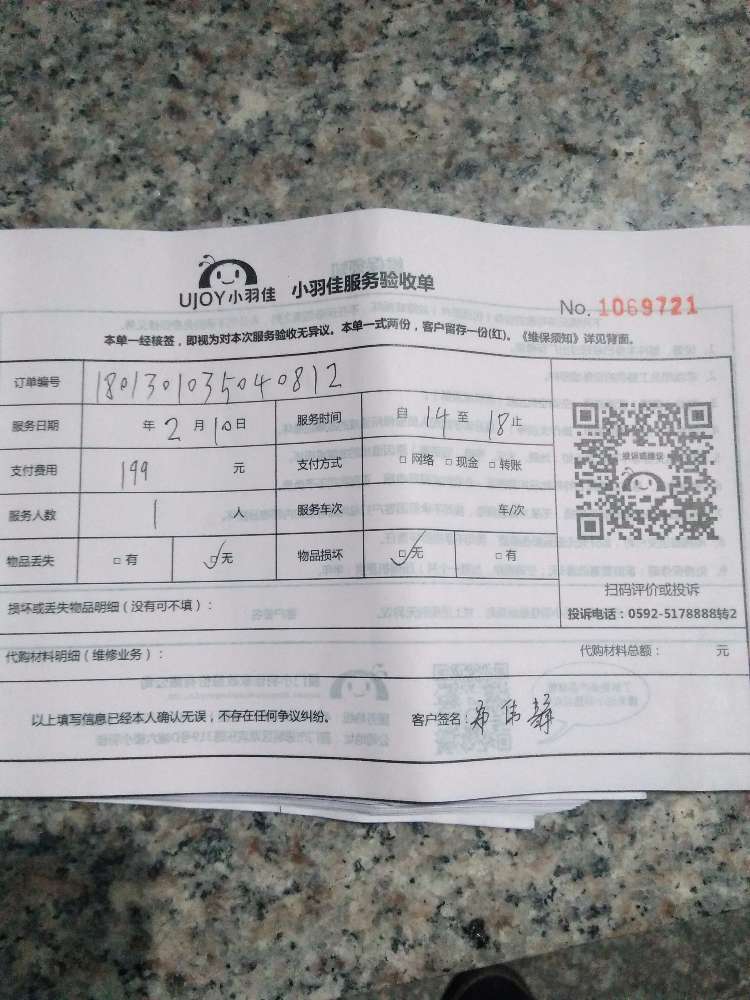 UJOY小羽佳 小羽佳服务验收单
No. 1069721
本单一经核签，即视为对本次服务验收无异议。本单一式两份，客户留存一份(红)。《维保须知》详见背面。
订单编号 1801301035040812
服务日期 年 2 月 10 日 服务时间 自 14 至 18 止
支付费用 199 元 支付方式 □ 网络 □ 现金 □ 转账
服务人数 1 人 服务车次 车/次
物品丢失 □ 有 □ 无 物品损坏 □ 无 □ 有
投诉或建议
扫码评价或投诉
投诉电话：0592-5178888转2
损坏或丢失物品明细（没有可不填）：
代购材料明细（维修业务）： 代购材料总额： 元
以上填写信息已经本人确认无误，不存在任何争议纠纷。 客户签名：郑伟静